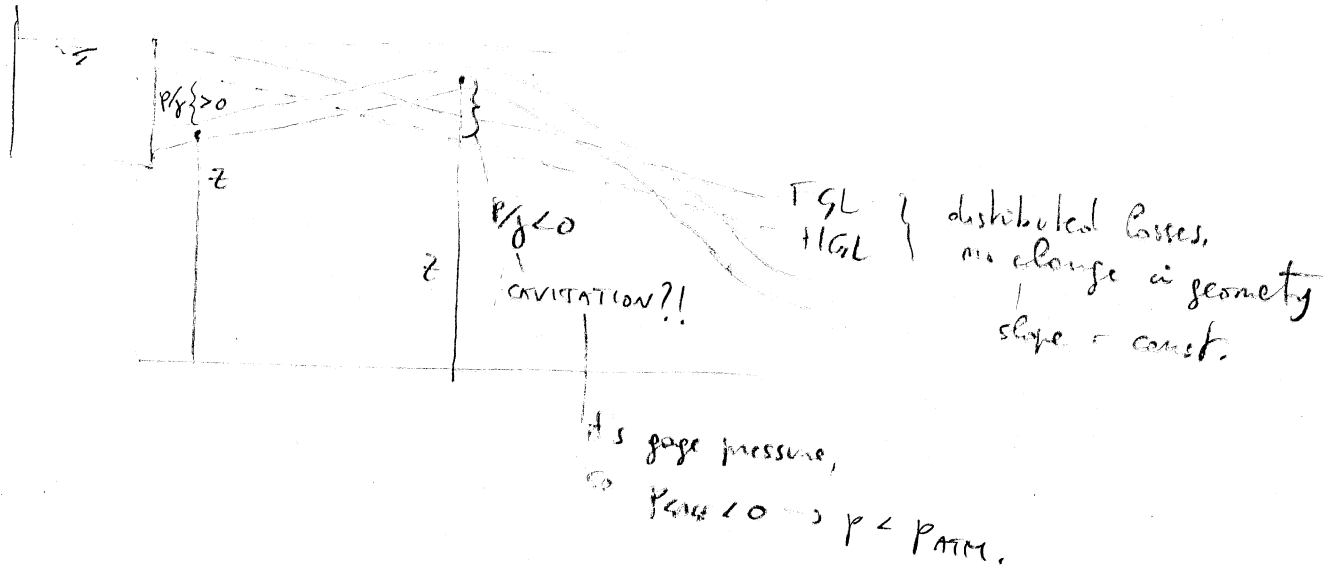 P/γ{>0
z
z
P/γ<0
CAVITATION?!
TGL } distributed losses,
HGL no change in geometry
slope = const.
it's gage pressure,
so PGAGE < 0 → p < PATM.